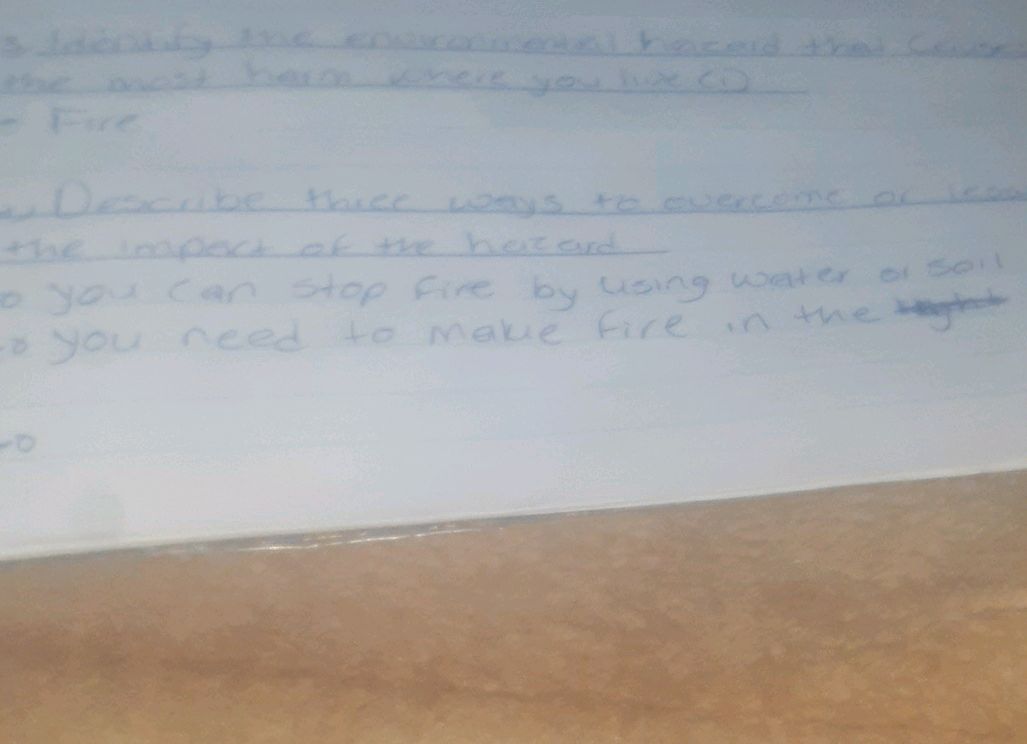 s Identify the environmental hazard that Cause
the most harm where you live (1)
- Fire
Describe three ways to overcome or less
the impact of the hazard
you can stop fire by using water or soil
you need to make fire in the